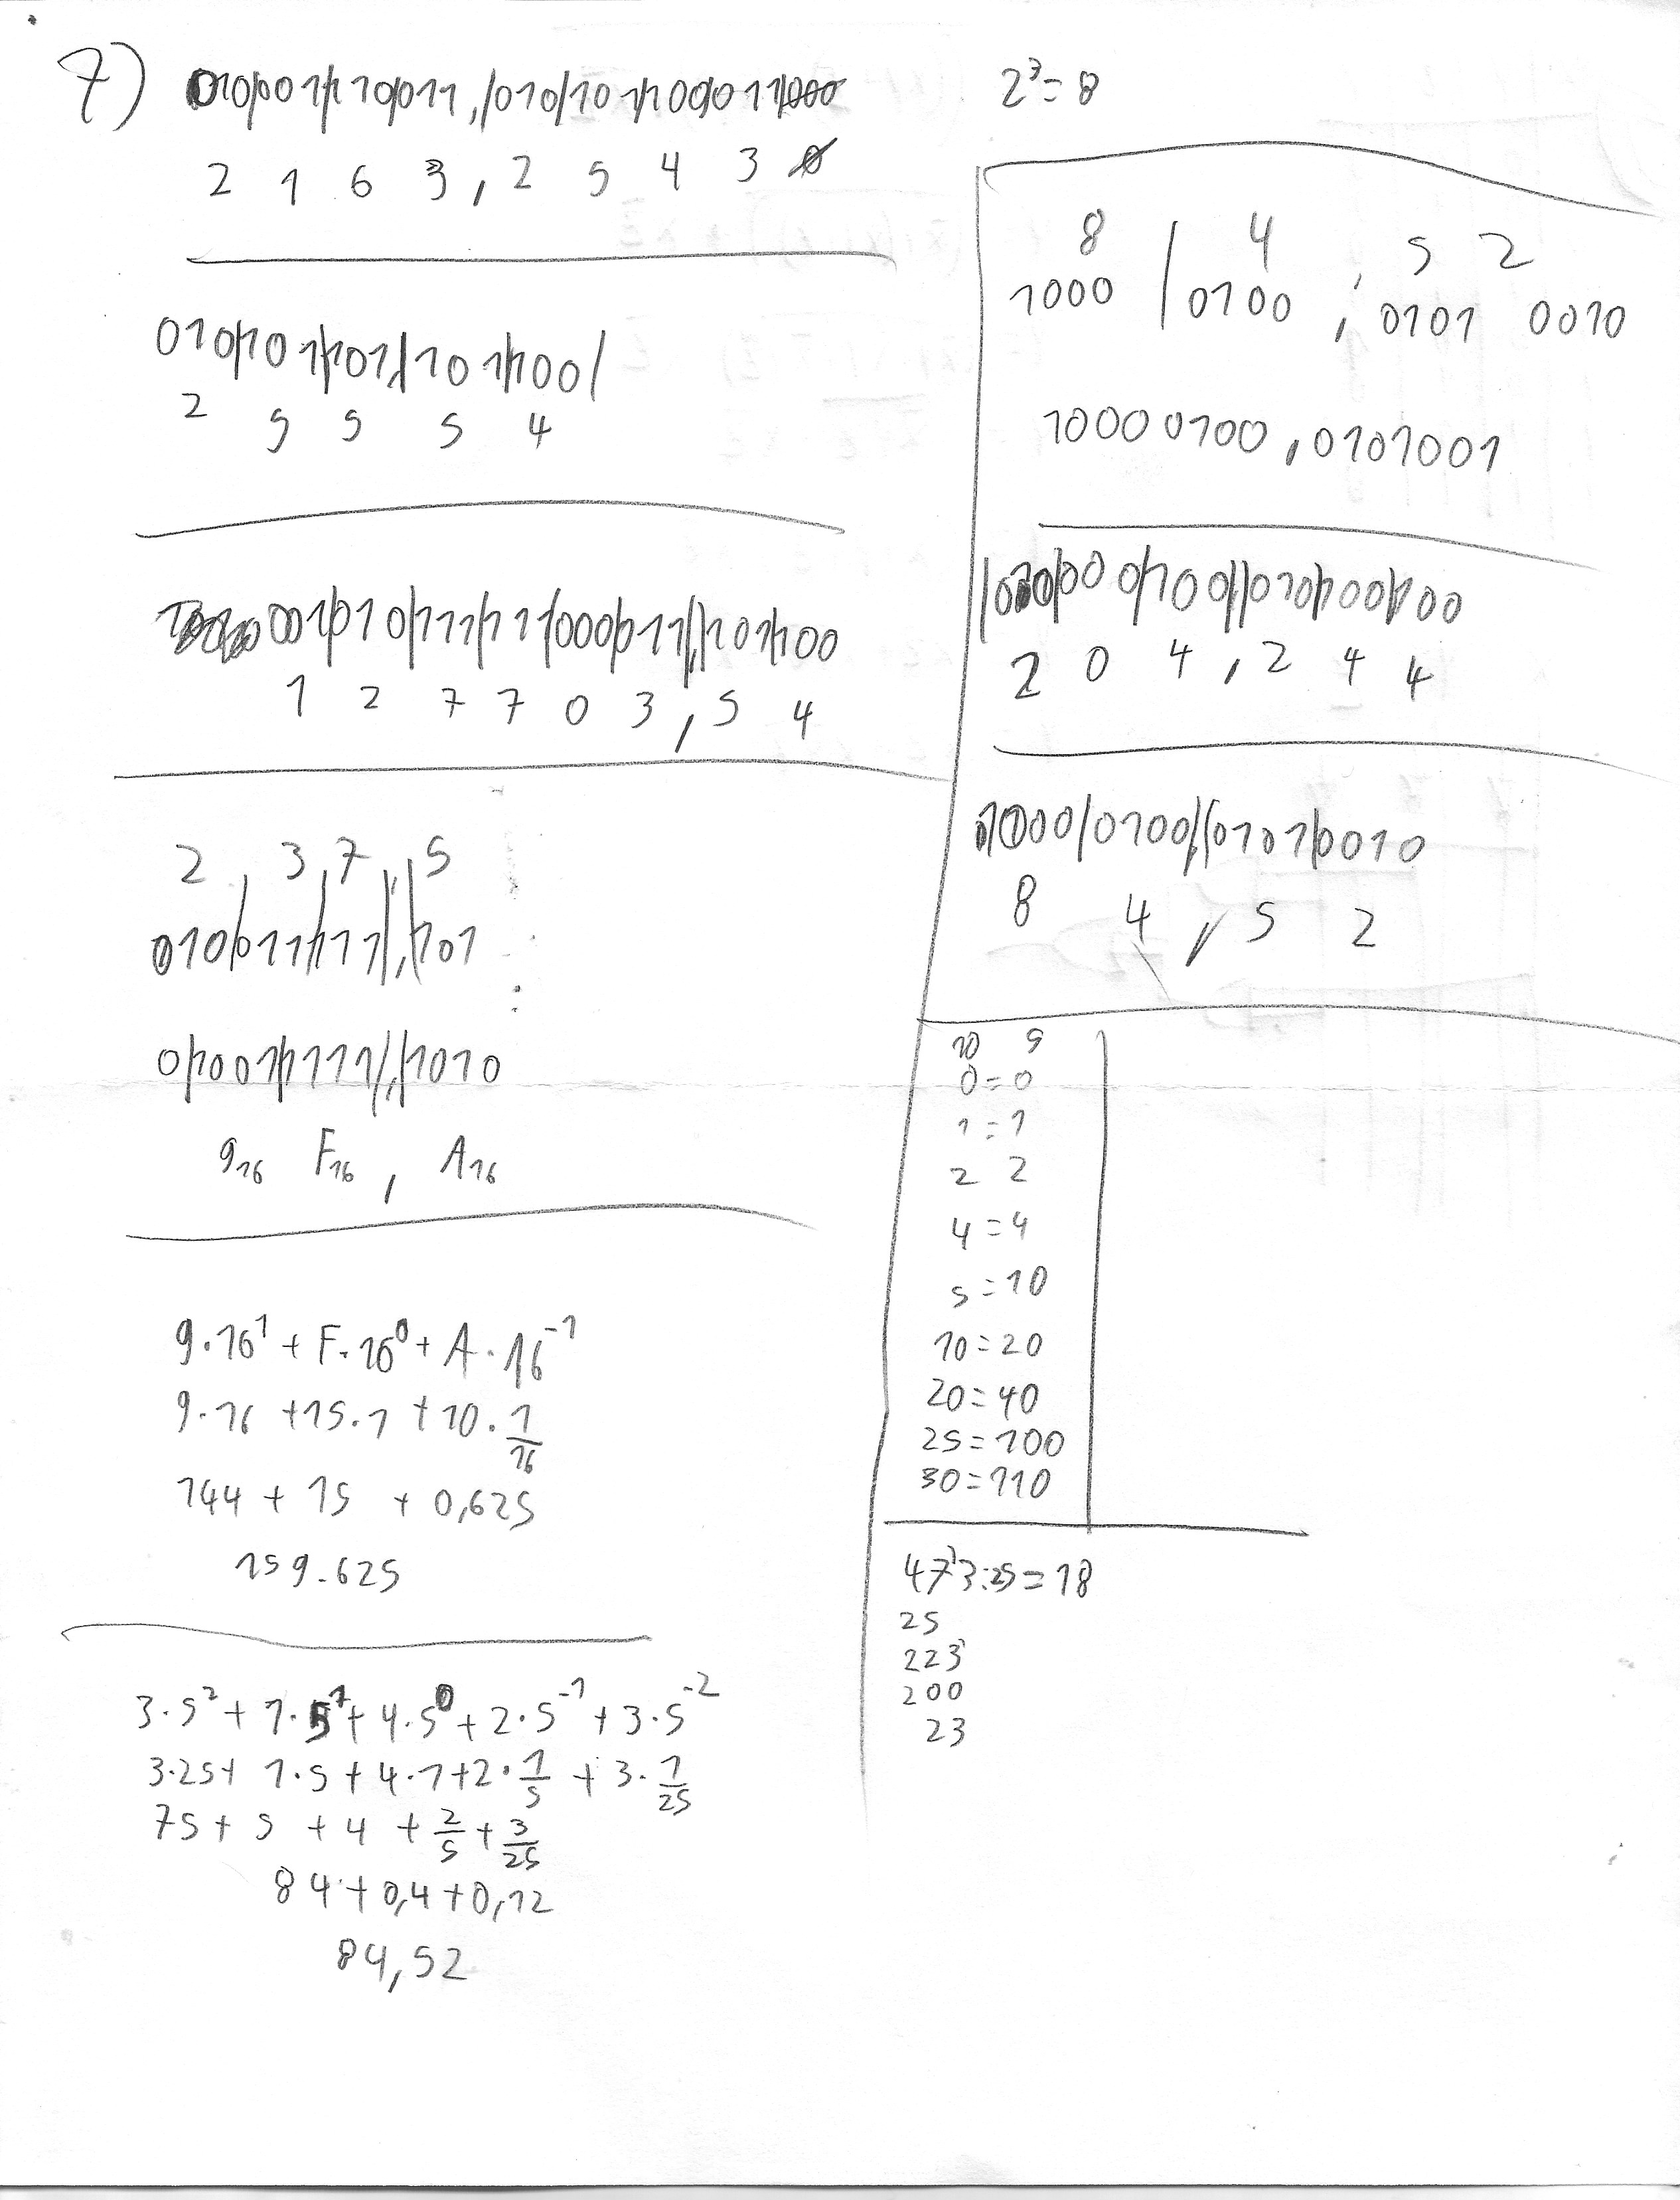 7) 010/001/110/011,/010/101/100/011/000
2 1 6 3, 2 5 4 3 0
010/101/101,/101/100/
2 5 5 5 4
001/010/111/111/000/011,/101/100
1 2 7 7 0 3, 5 4
2, 3, 7, 5
010/011/111/,/101
0/1001/1111/,/1010
9₁₆ F₁₆, A₁₆
9·16¹ + F·16⁰ + A·16⁻¹
9·16 + 15·1 + 10·1/16
144 + 15 + 0,625
159.625
3·5² + 1·5¹ + 4·5⁰ + 2·5⁻¹ + 3·5⁻²
3·25 + 1·5 + 4·1 + 2·1/5 + 3·1/25
75 + 5 + 4 + 2/5 + 3/25
84 + 0,4 + 0,12
84,52
2³ = 8
8 4, 5 2
1000 / 0100, 0101 0010
10000100,0101001
010/000/100,/010/100/100
2 0 4, 2 4 4
1000/0100,/0101/0010
8 4, 5 2
10 5
0 = 0
1 = 1
2 2
4 = 4
5 = 10
10 = 20
20 = 40
25 = 100
30 = 110
473:25 = 18
25
223
200
23